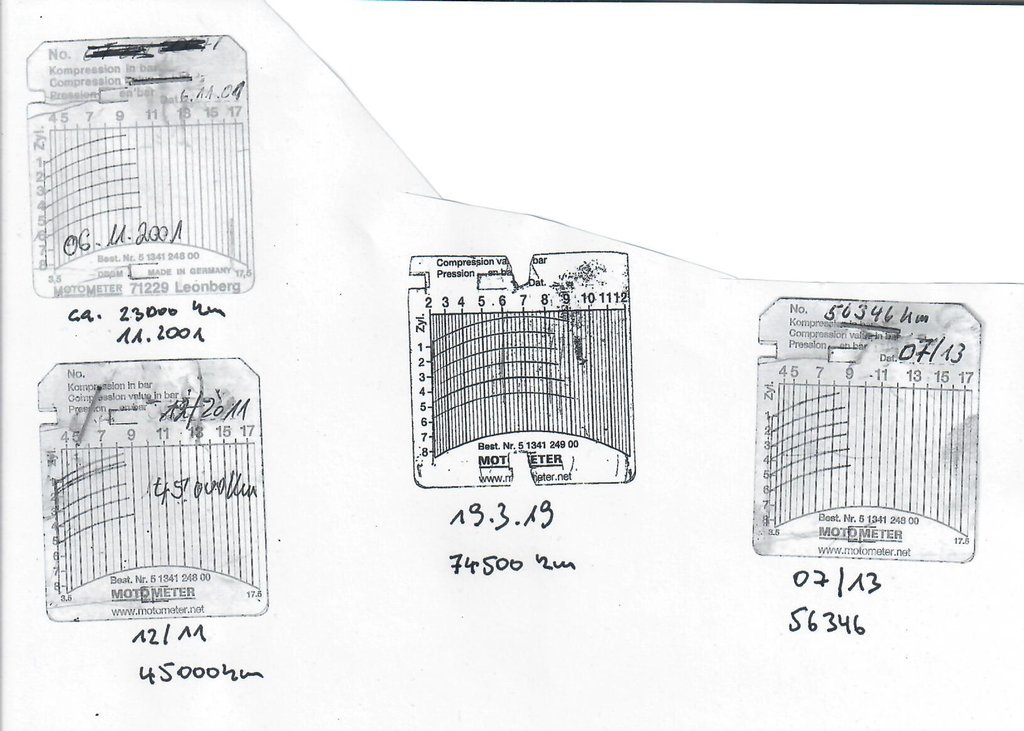 No.
Kompression in bar
Compression value
Pression en bar
Dat. 6.11.01
4 5 7 9 11 13 15 17
Zyl.
1
2
3
4
5
6
7
8
06.11.2001
Best. Nr. 5 1341 248 00
3,5 DBGM MADE IN GERMANY 17,5
MOTOMETER 71229 Leonberg
ca. 23000 km
11.2001
No.
Kompression in bar
Compression value in bar
Pression en bar
12/2011
4 5 7 9 11 13 15 17
Zyl.
1
2
3
4
5
6
7
8
45000 km
Best. Nr. 5 1341 248 00
3.5 MOTOMETER 17.5
www.motometer.net
12/11
45000 km
Compression va bar
Pression en ba
Dat.
2 3 4 5 6 7 8 9 10 11 12
Zyl.
1
2
3
4
5
6
7
8
Best. Nr. 5 1341 249 00
MOTOMETER
www.m tometer.net
19.3.19
74500 km
No. 56346 km
Kompression in bar
Compression value in bar
Pression en bar
Dat. 07/13
4 5 7 9 11 13 15 17
Zyl.
1
2
3
4
5
6
7
8
Best. Nr. 5 1341 248 00
3.5 MOTOMETER 17.5
www.motometer.net
07/13
56346